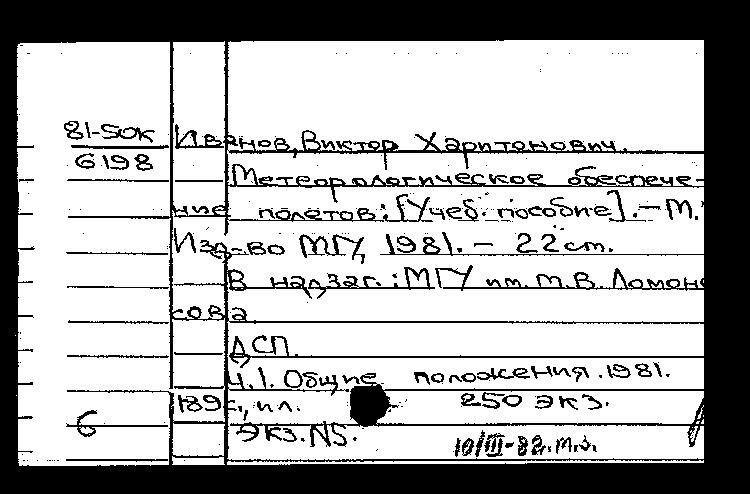 81-50к
6198
Иванов, Виктор Харитонович.
Метеорологическое обеспече-
ние полетов: [Учеб. пособие]. - М.
Изд-во МГУ, 1981. - 22 cm.
В надзаг.: МГУ им. М.В. Ломоно
сова.
ДСП.
Ч.1. Общие положения. 1981.
189 с., ил. 250 экз.
6
Экз. N5.
10/III-82.